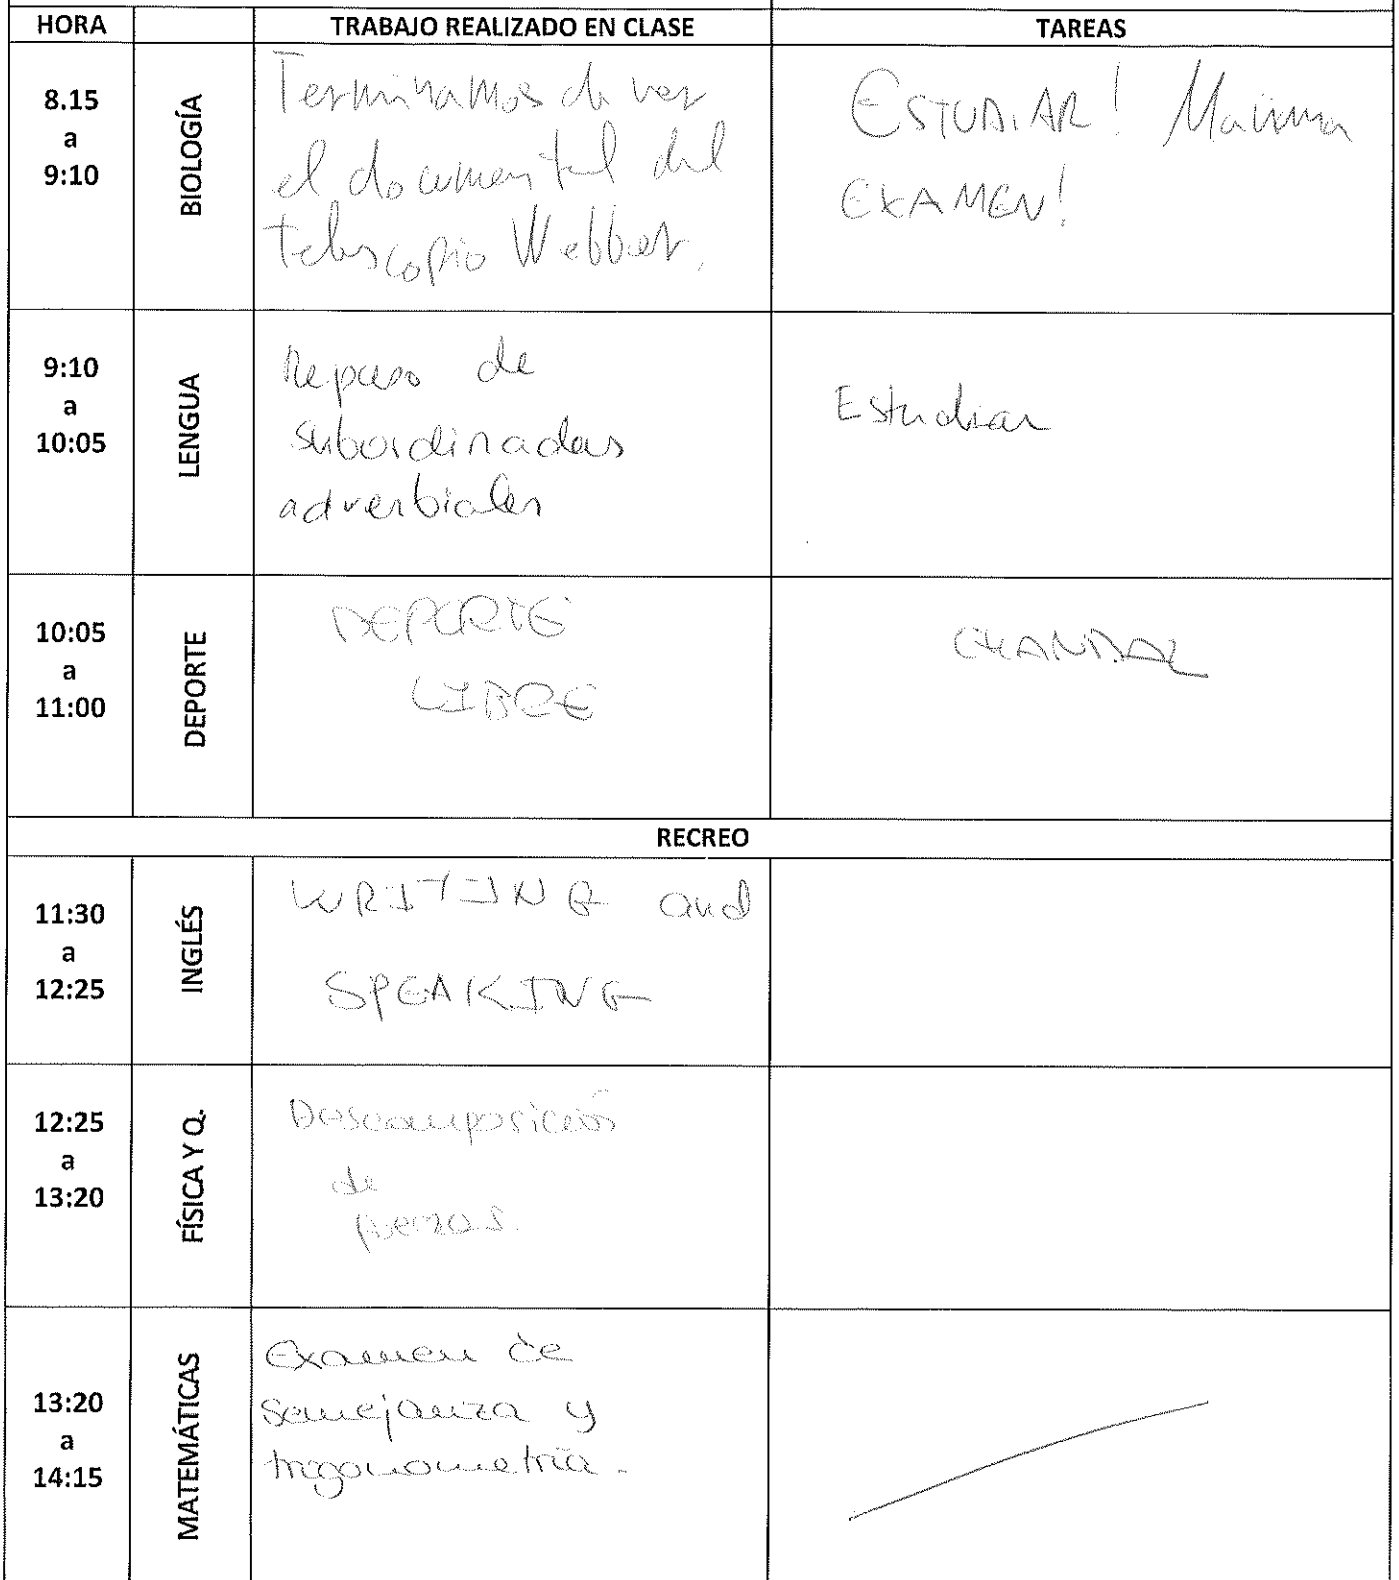 HORA TRABAJO REALIZADO EN CLASE TAREAS
8.15
a
9:10
BIOLOGÍA
Terminamos de ver
el documental del
telescopio Webber.
ESTUDIAR! Mañana
EXAMEN!
9:10
a
10:05
LENGUA
Repaso de
subordinadas
adverbiales
Estudiar
10:05
a
11:00
DEPORTE
DEPORTE
LIBRE
CHANDAL
RECREO
11:30
a
12:25
INGLÉS
WRITING and
SPEAKING
12:25
a
13:20
FÍSICA Y Q.
Descomposición
de
fuerzas.
13:20
a
14:15
MATEMÁTICAS
Examen de
semejanza y
trigonometría.